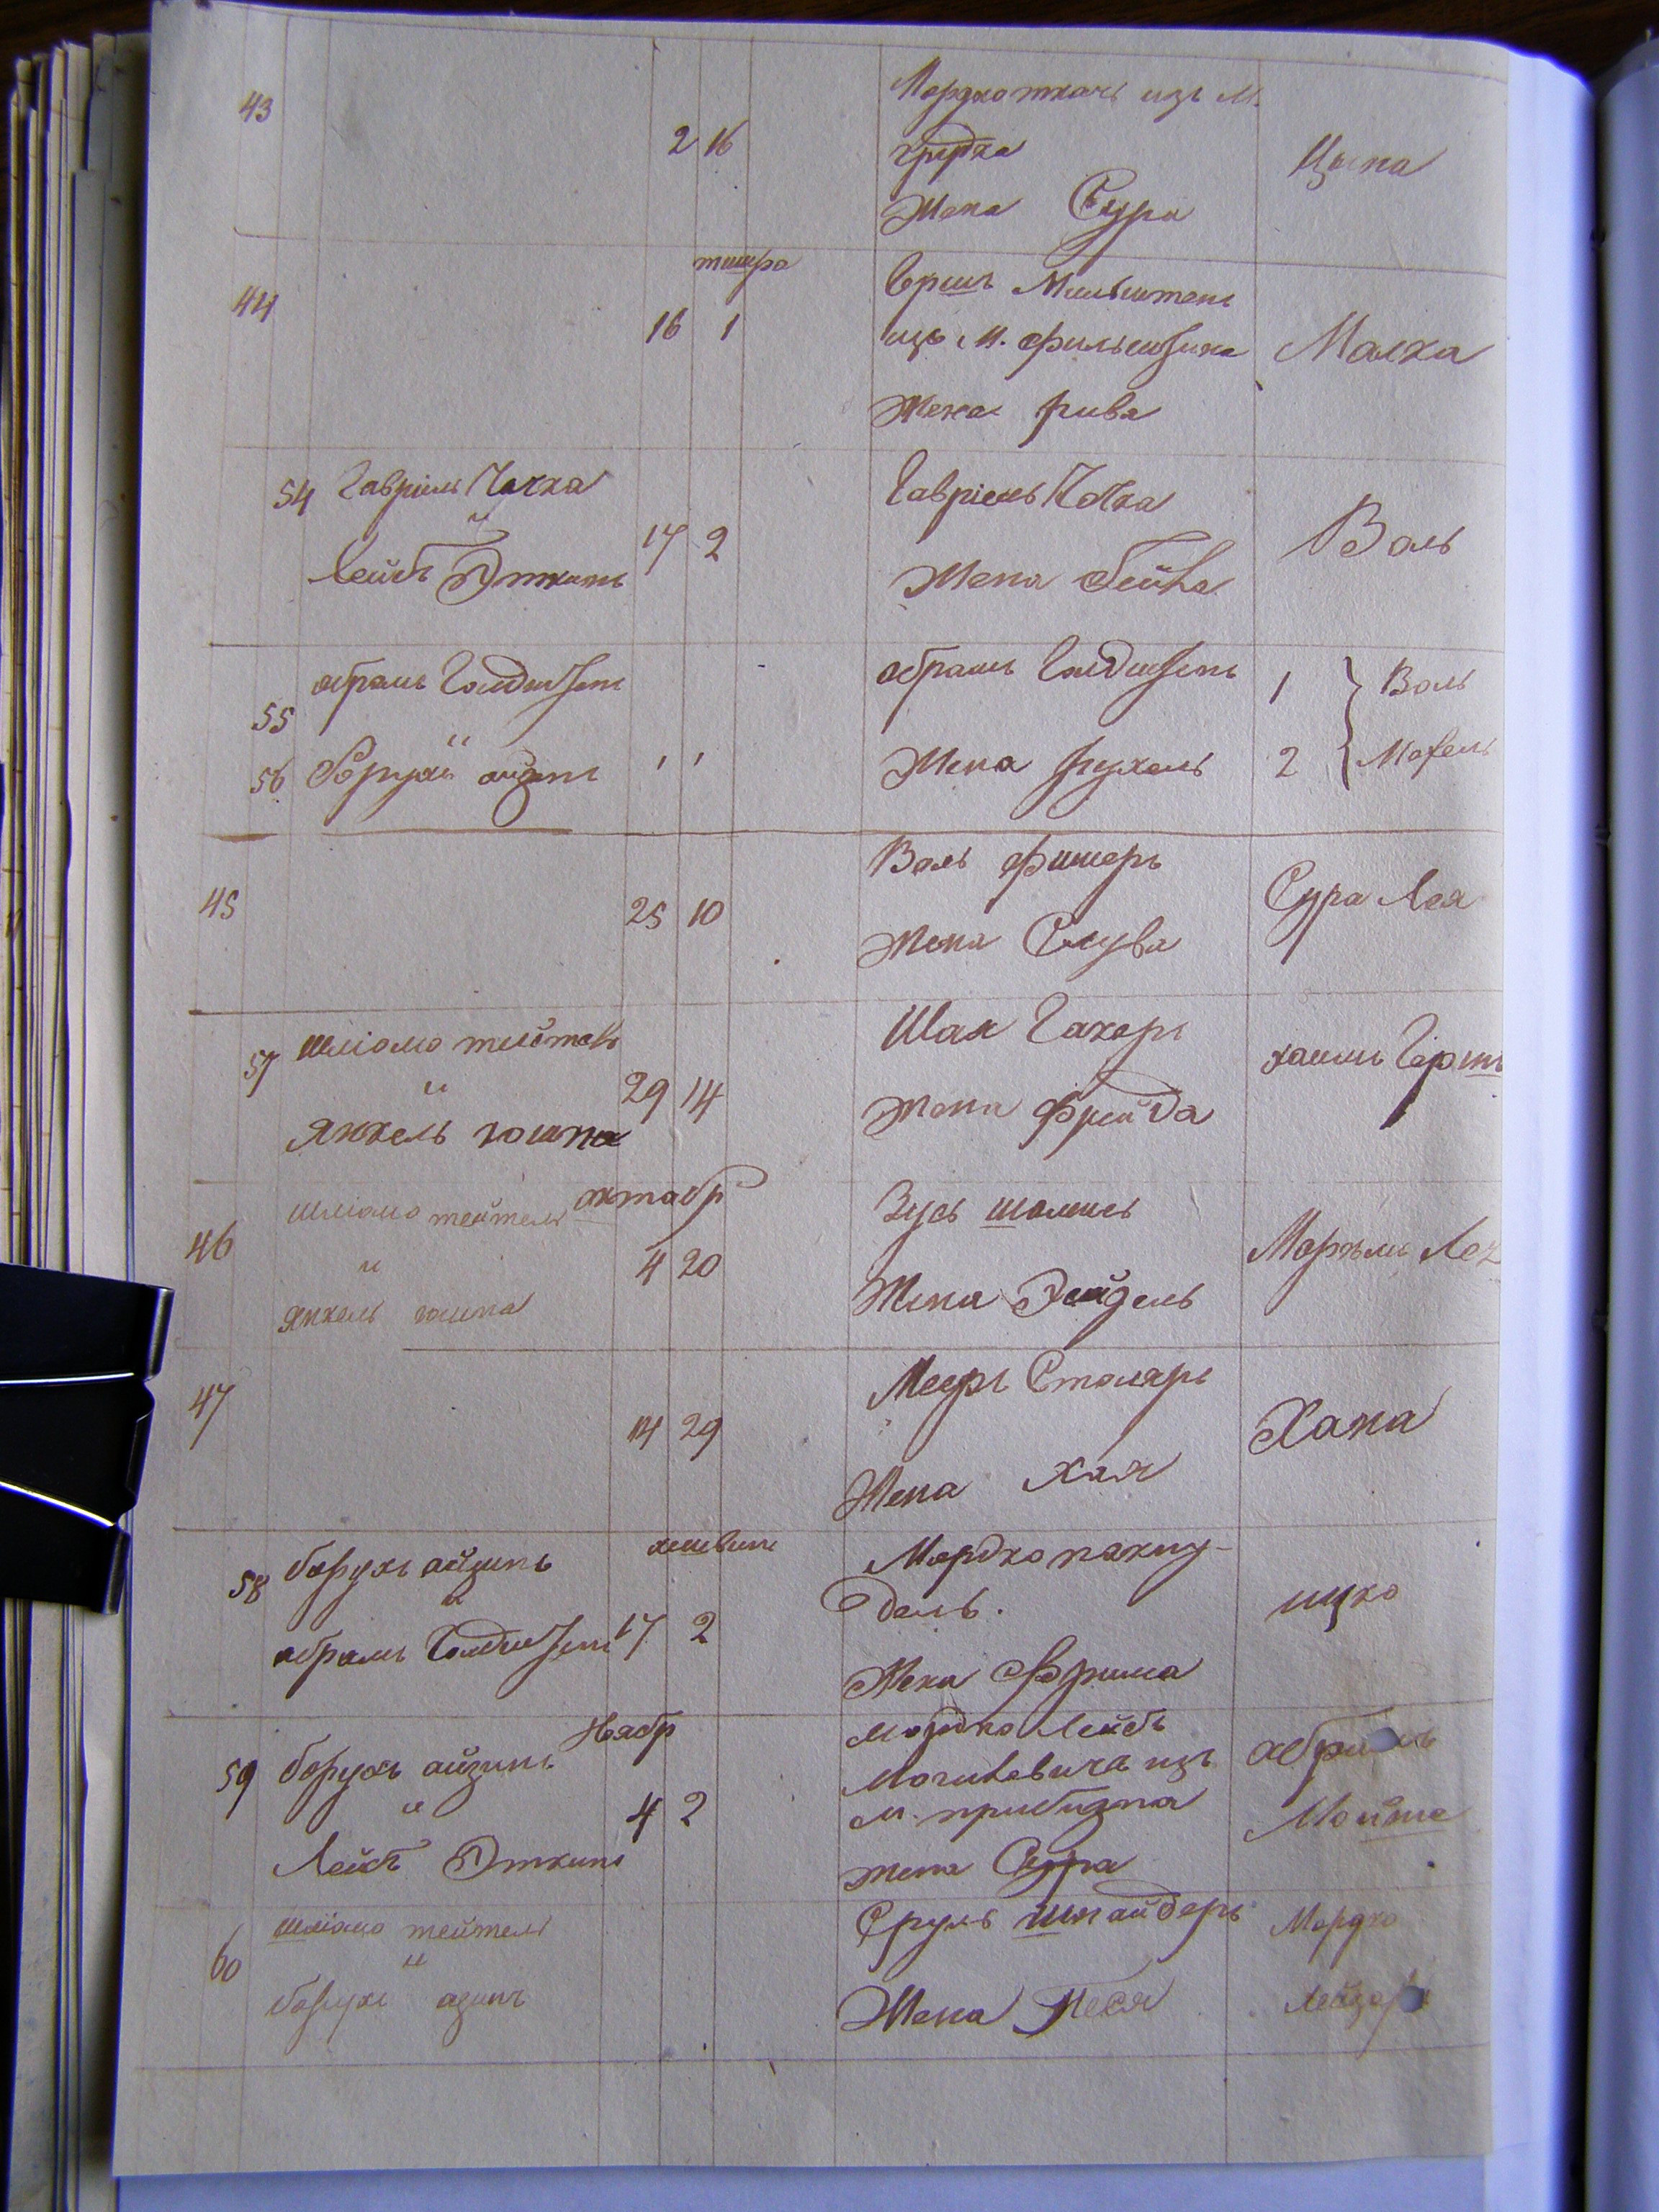 43
2 16
Мордко ткачъ изъ М.
грудка
Жена Сура
Цыпа
44
тишра
16 1
Гершъ Мильштенъ
изъ М. Фильштина
Жена Рива
Малка
54 Гавріель Чачка
и
Лейбъ Эткинъ
17 2
Гавріель Чачка
Жена Бейла
Воль
55 абрамъ Голдштенъ
и
56 Борухъ айзинъ
абрамъ Голдштенъ
Жена Рухель
1 Воль
2 Мохель
45
25 10
Воль Фишеръ
Жена Слува
Сура Лея
57 шліомо тейтель
и
Янкель юшпа
29 14
Шая Гахеръ
Жена Фрейда
хаимъ Гершъ
46
шліомо тейтель
и
Янкель юшпа
октабр
4 20
Зусь
Жена Эйдель
Марьям Лея
47
14 29
Мееръ Столяръ
Жена Хая
Хана
58 борухъ айзинъ
и
абрамъ Голдштенъ
хешвинъ
17 2
Мордко пакну-
дель.
Жена Фрима
ицко
59 борухъ айзинъ
и
Лейбъ Эткинъ
Ноябр
4 2
Мордко Лейбъ
Могилевичъ изъ
м. прибузна
жена Сура
абрамъ
Мойше
60 шліомо тейтель
и
борухъ азинъ
Сруль шнайдеръ
Жена Песя
Мордко
Лейзоръ